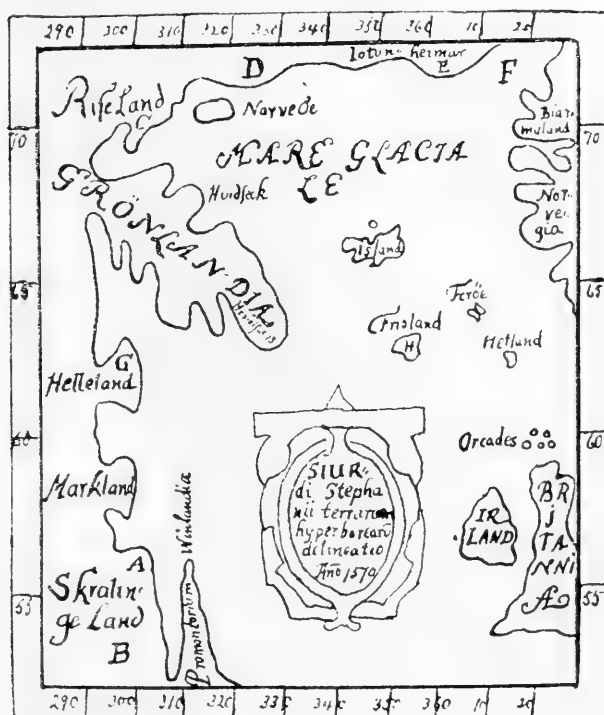 290 300 310 320 330 340 350 360 10 20
D
Iotun heimar
E
F
Rise Land
C
Narveöe
Biar
maland
70
70
MARE GLACIA
LE
GRÖNLANDIA
Huidserk
Nor
ve
gia
Island
65
65
Feröe
Frisland
H
Hetland
G
Helleland
60
60
Orcades
Markland
SIUR
di Stepha
nii terrarum
hyperborearū
delineatio
Año 1570
IR
LAND
BR
i
TA
NNi
Æ
Promontorium Winlandiæ
A
Skralin
ge Land
B
55
55
290 300 310 320 330 340 350 360 10 20